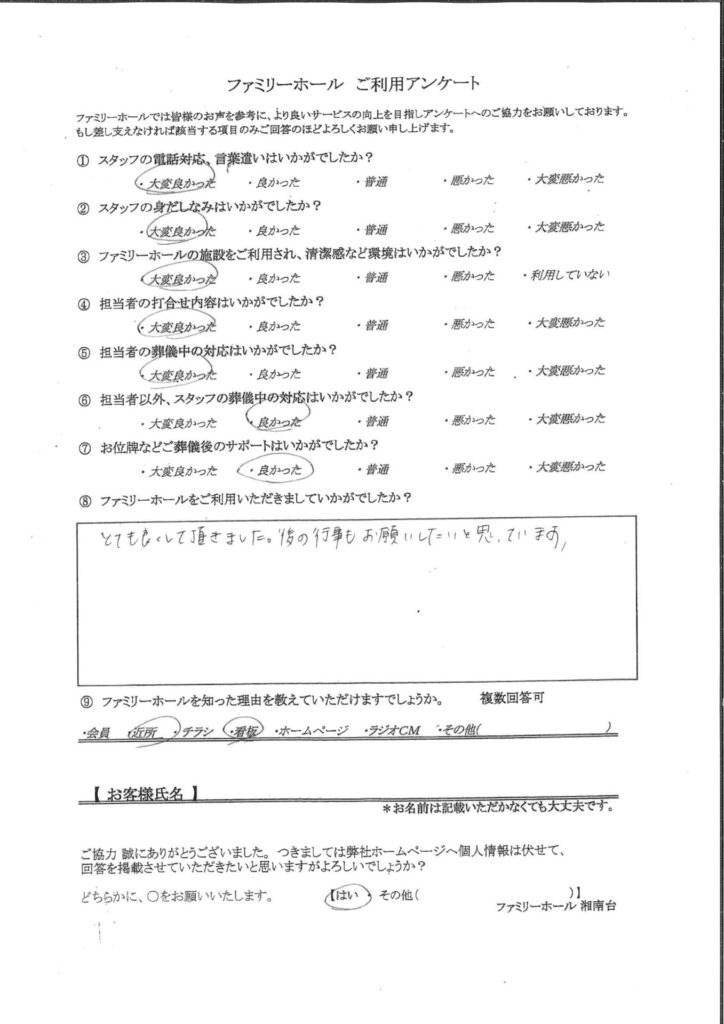 ファミリーホール ご利用アンケート
ファミリーホールでは皆様のお声を参考に、より良いサービスの向上を目指しアンケートへのご協力をお願いしております。
もし差し支えなければ該当する項目のみご回答のほどよろしくお願い申し上げます。
① スタッフの電話対応、言葉遣いはいかがでしたか？
・大変良かった ・良かった ・普通 ・悪かった ・大変悪かった
② スタッフの身だしなみはいかがでしたか？
・大変良かった ・良かった ・普通 ・悪かった ・大変悪かった
③ ファミリーホールの施設をご利用され、清潔感など環境はいかがでしたか？
・大変良かった ・良かった ・普通 ・悪かった ・利用していない
④ 担当者の打合せ内容はいかがでしたか？
・大変良かった ・良かった ・普通 ・悪かった ・大変悪かった
⑤ 担当者の葬儀中の対応はいかがでしたか？
・大変良かった ・良かった ・普通 ・悪かった ・大変悪かった
⑥ 担当者以外、スタッフの葬儀中の対応はいかがでしたか？
・大変良かった ・良かった ・普通 ・悪かった ・大変悪かった
⑦ お位牌などご葬儀後のサポートはいかがでしたか？
・大変良かった ・良かった ・普通 ・悪かった ・大変悪かった
⑧ ファミリーホールをご利用いただきましていかがでしたか？
とても良くして頂きました。後の行事もお願いしたいと思っています。
⑨ ファミリーホールを知った理由を教えていただけますでしょうか。 複数回答可
・会員 ・近所 ・チラシ ・看板 ・ホームページ ・ラジオCM ・その他( )
【 お客様氏名 】
＊お名前は記載いただかなくても大丈夫です。
ご協力 誠にありがとうございました。つきましては弊社ホームページへ個人情報は伏せて、
回答を掲載させていただきたいと思いますがよろしいでしょうか？
どちらかに、○をお願いいたします。 【はい ・ その他( )】
ファミリーホール 湘南台